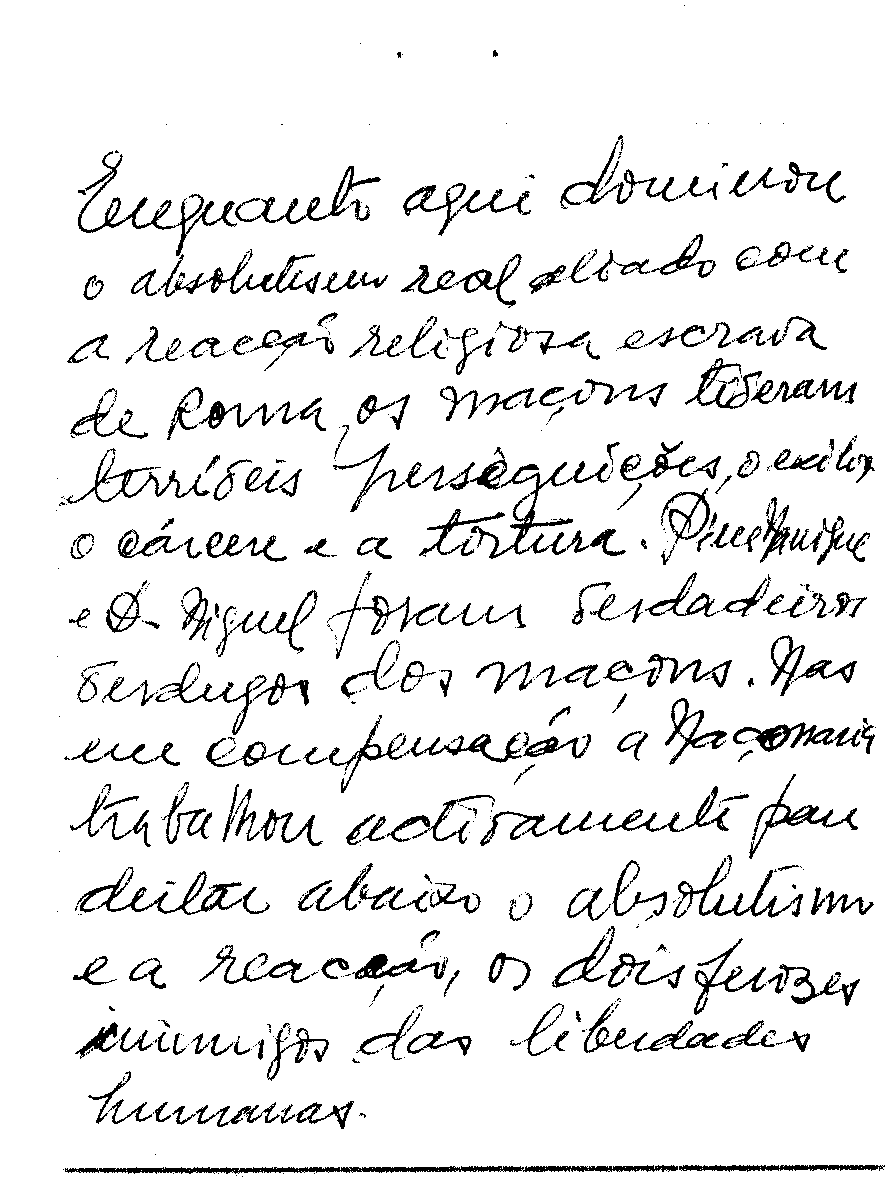 Emquanto aqui dominou
o absolutismo real aliado com
a reacção religiosa escrava
de Roma, os maçons tiveram
terríveis perseguições, o exilio,
o cárcere e a tortura. Pina Manique
e D. Miguel foram verdadeiros
verdugos dos maçons. Mas
em compensação a Maçonaria
trabalhou activamente para
deitar abaixo o absolutismo
e a reacção, os dois ferozes
inimigos das liberdades
humanas.